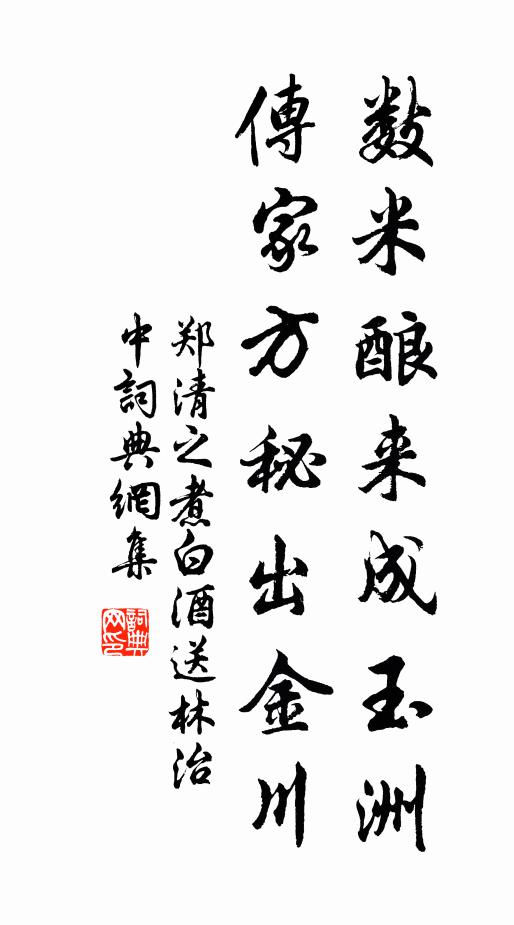 数米酿来成玉洲
傳家方秘出金川
郑清之煮白酒送林治
中詞典網集
詞典網印